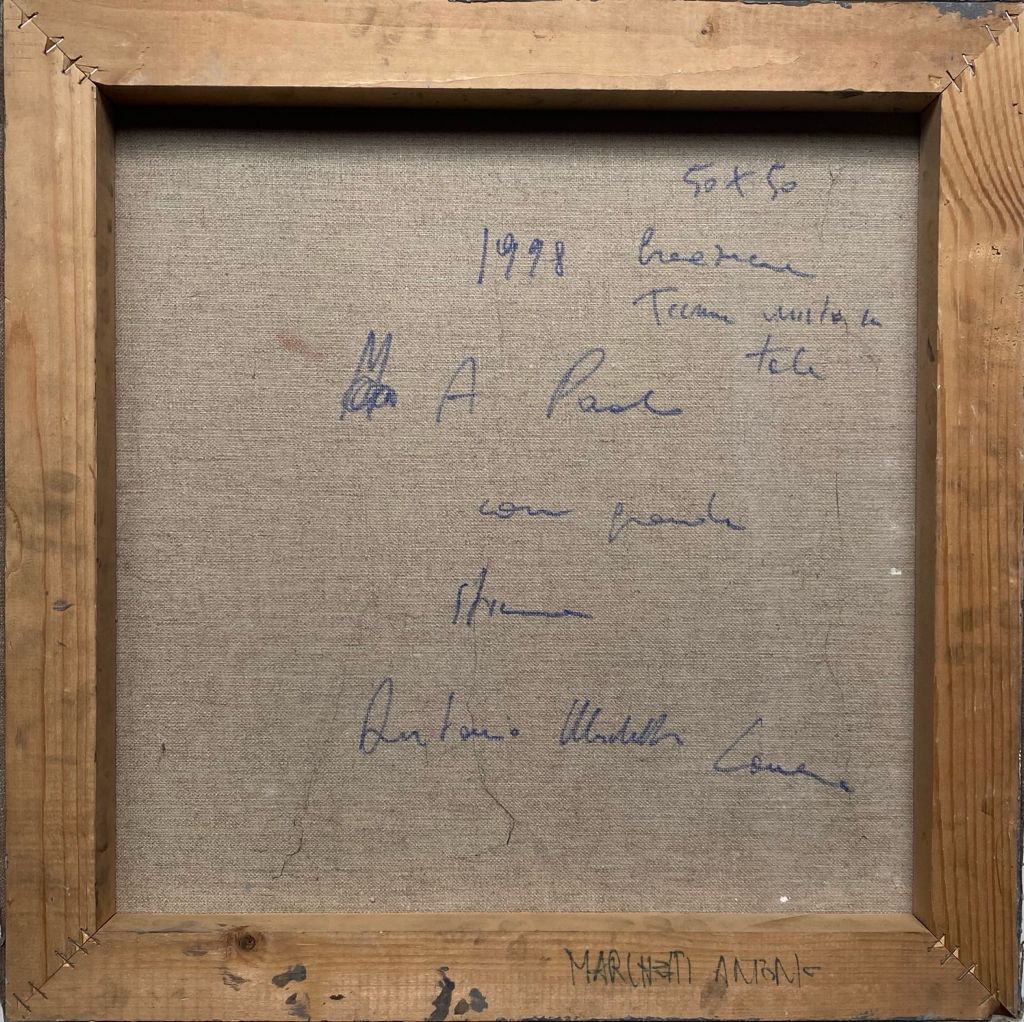 50 x 50
1998
Tecnica mista su
tela
A Paolo
con grande
stima
Antonio
MARCHETTI ANTONIO